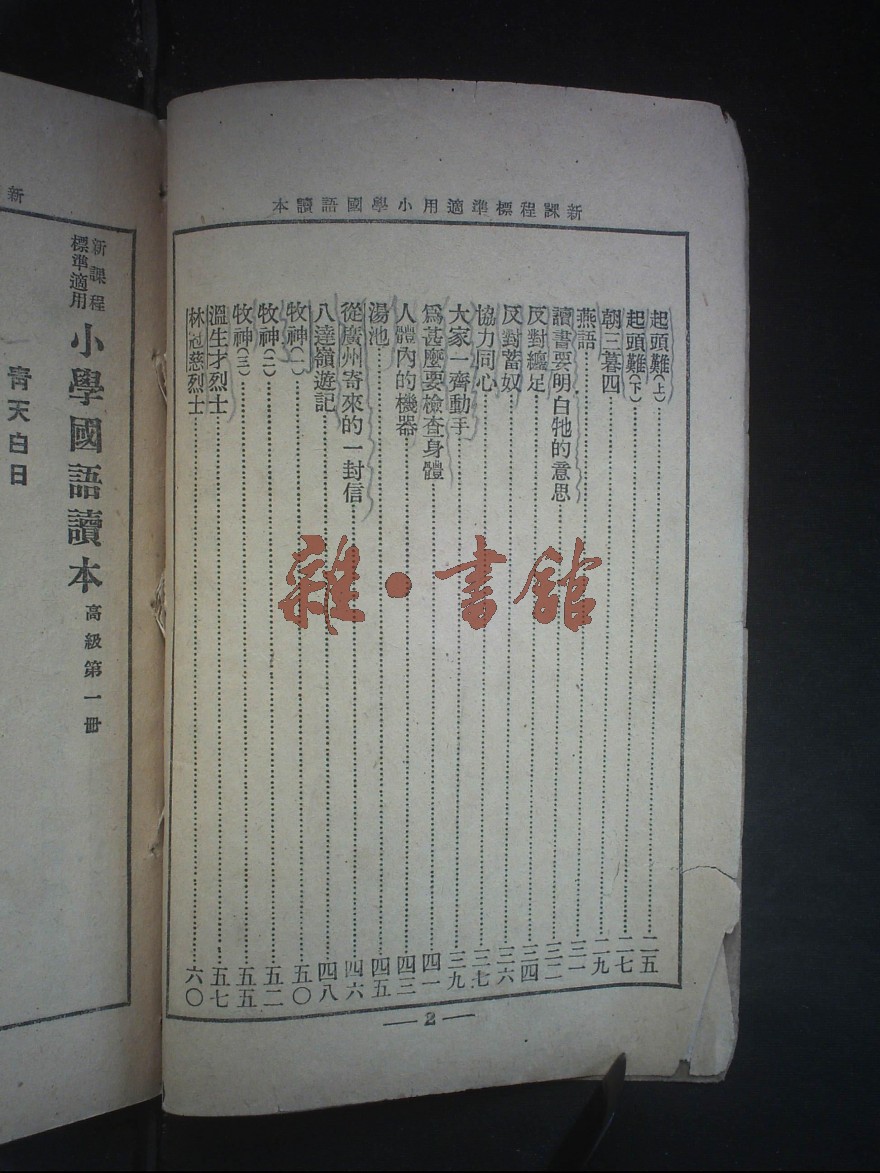 新課程標準適用小學國語讀本
起頭難(上)……二五
起頭難(下)……二七
朝三暮四……二九
燕語……三一
讀書要明白牠的意思……三二
反對纏足……三四
反對蓄奴……三六
協力同心……三七
大家一齊動手……三九
爲甚麼要檢查身體……四一
人體內的機器……四三
湯池……四五
從廣州寄來的一封信……四六
八達嶺遊記……四八
牧神(一)……五〇
牧神(二)……五二
牧神(三)……五五
溫生才烈士……五七
林冠慈烈士……六〇
— 2 —
雜·書館
新
新課程
標準適用
小學國語讀本
高級第一冊
靑天白日